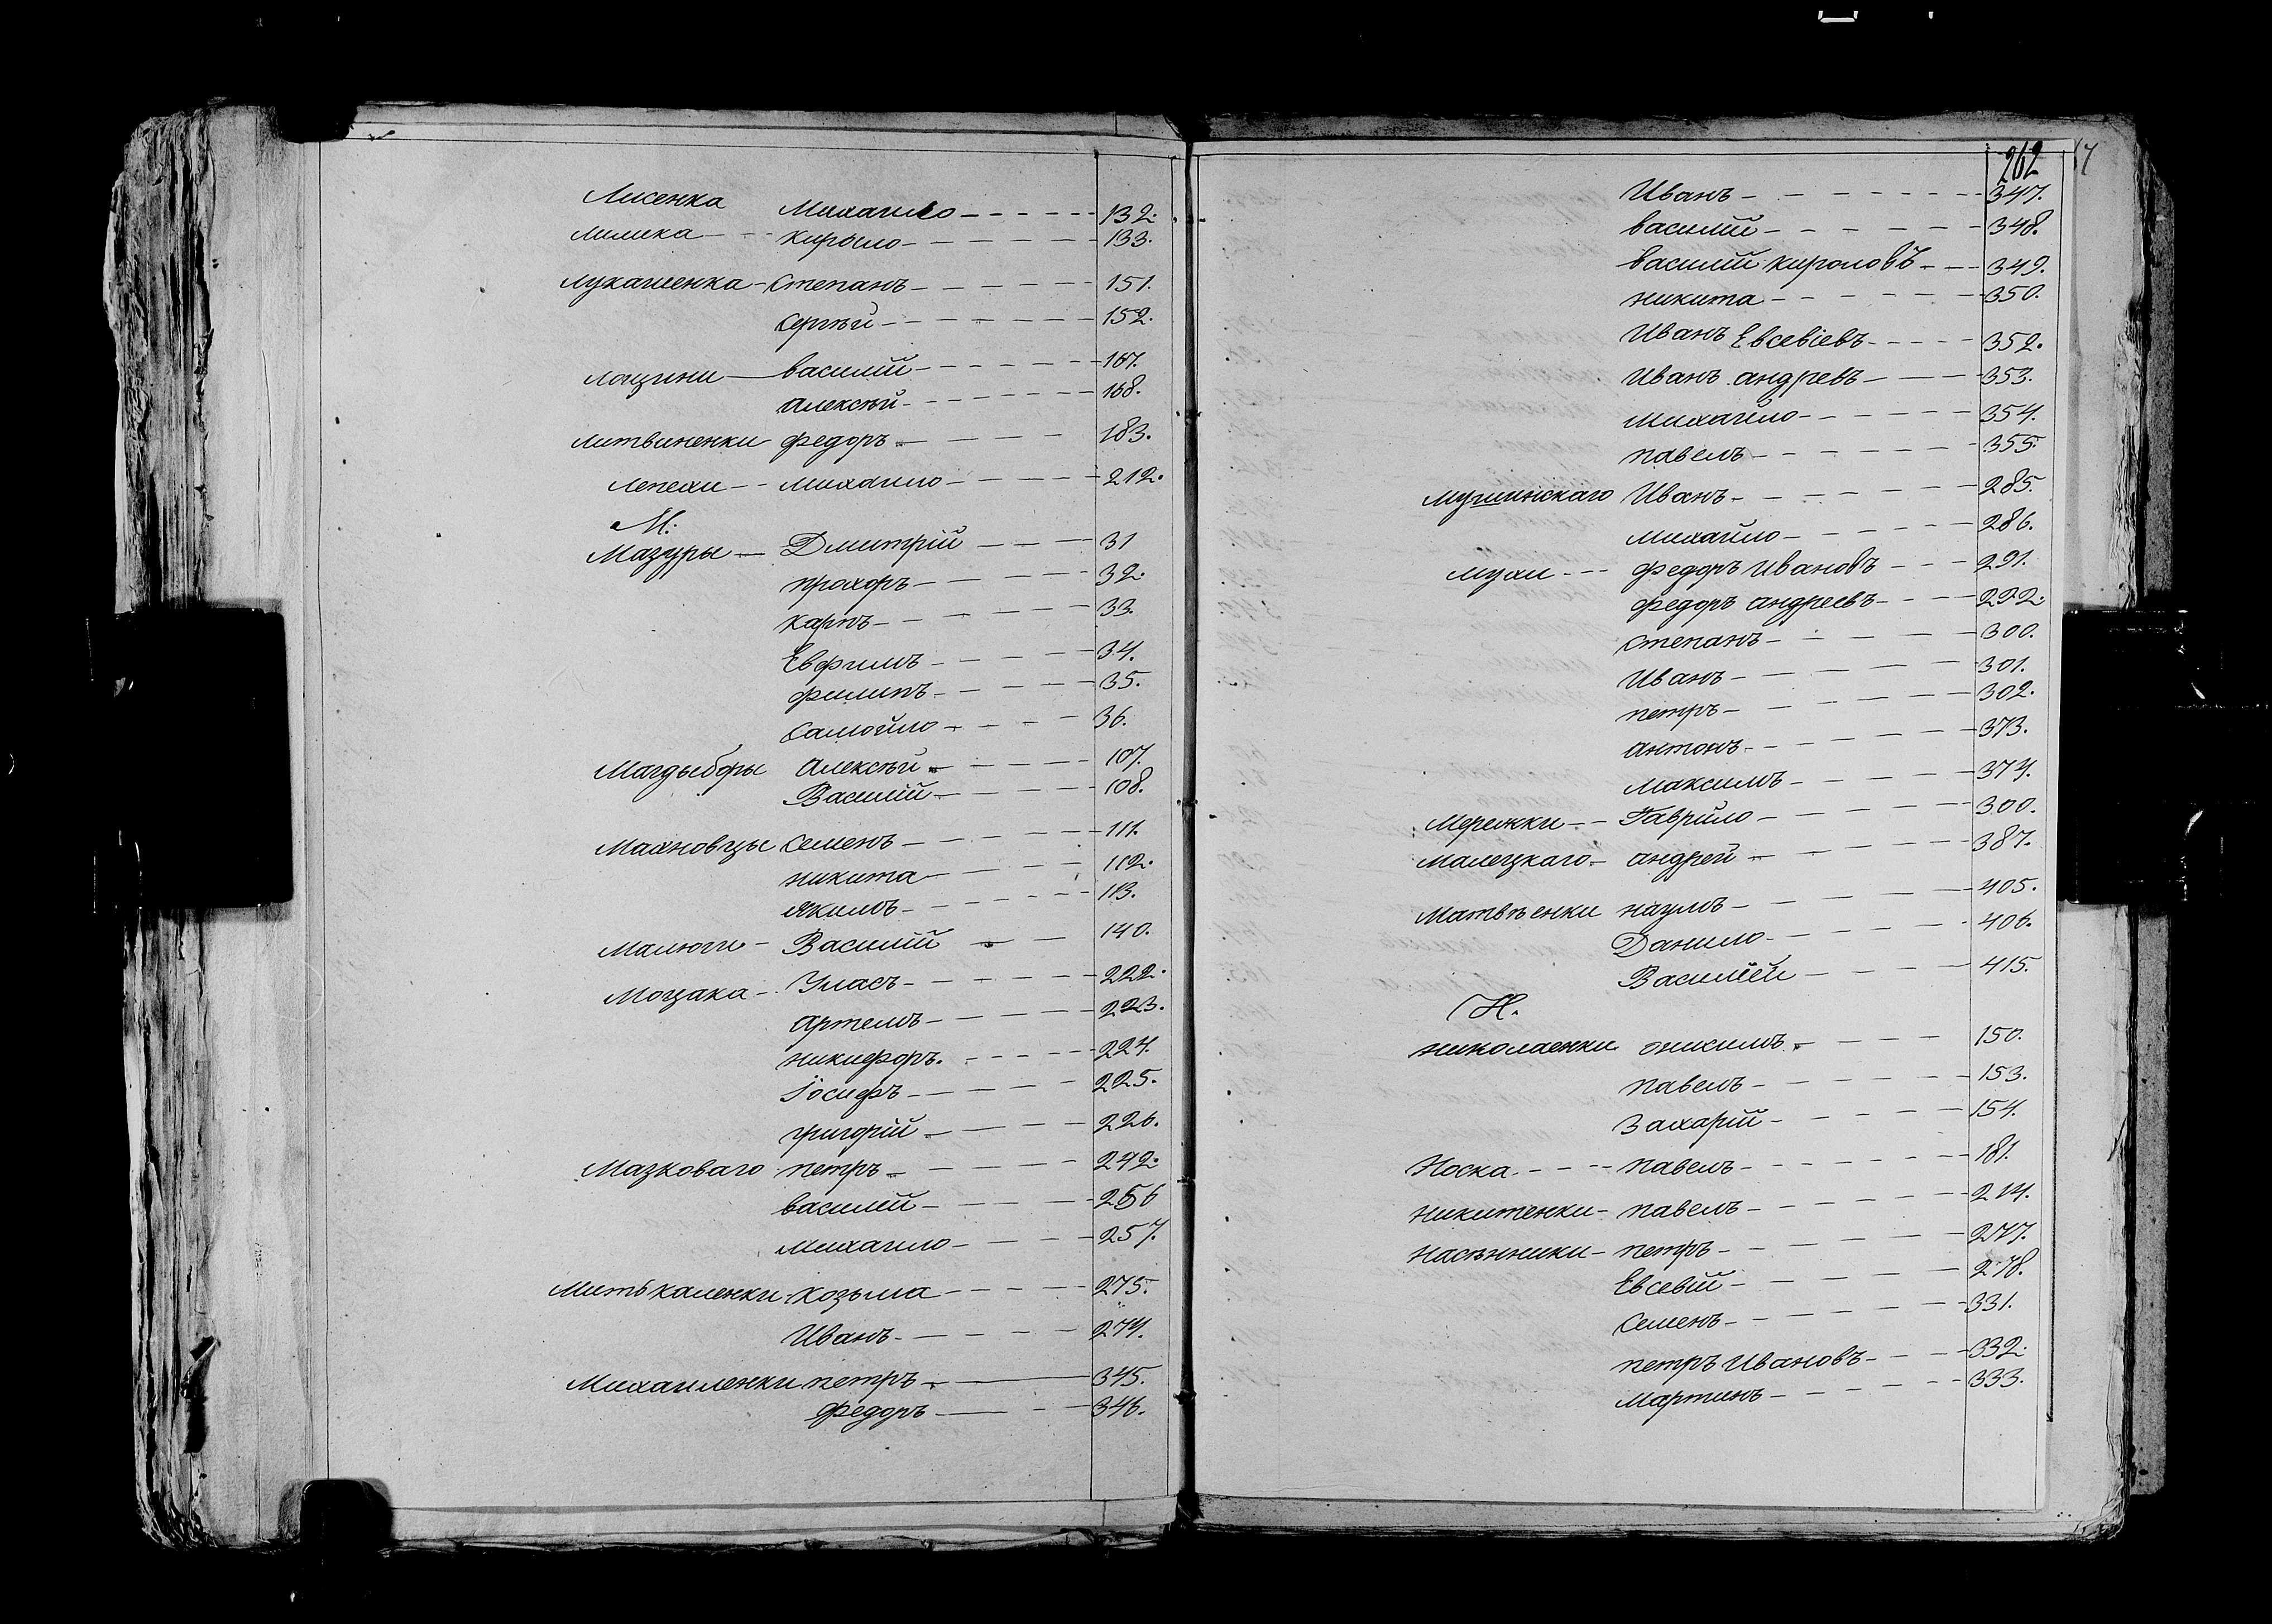 Лисенка Михаило 132.
Лилика Кирыло 133.
Лукашенка Степанъ 151.
Сергѣй 152.
Лощини василій 167.
Алексѣй 168.
Литвиненки федоръ 183.
Лепехи Михаило 212.
М:
Мазуры Дмитрій 31
прохоръ 32.
Карпъ 33.
Евфимъ 34.
филипъ 35.
Самойло 36.
Магдыборы Алексѣй 107.
Василій 108.
Махновцы Семенъ 111.
никита 112.
Якимъ 113.
Малюги Василій 140.
Моцака Уласъ 222.
Артемъ 223.
никифоръ. 224.
Іосифъ 225.
григорій 226.
Мазковаго петръ 242.
василій 256
Михаило 257.
Митькаленки Козьма 275.
Иванъ 274.
Михаиленки петръ 345.
федоръ 346.
262
17
Иванъ 347.
василій 348.
василій кироловъ 349.
никита 350.
Иванъ Евсевіевъ 352.
Иванъ андревъ 353.
Михайло 354.
павелъ 355.
Мушинскаго Иванъ 285.
Михайло 286.
Мухи федоръ Ивановъ 291.
федоръ андреевъ 292.
степанъ 300.
Иванъ 301.
петръ 302.
антонъ 373.
Максимъ 374.
Мережки Гаврило 300.
Малецкаго андрей 387.
Матвѣенки наумъ 405.
Данило 406.
Василій 415.
Н.
николаенки онисимъ 150.
павелъ 153.
Захарій 154.
Носка павелъ 181.
никитенки павелъ 214.
насѣнники петръ 277.
Евсевій 278.
Семенъ 331.
петръ Ивановъ 332.
Мартинъ 333.